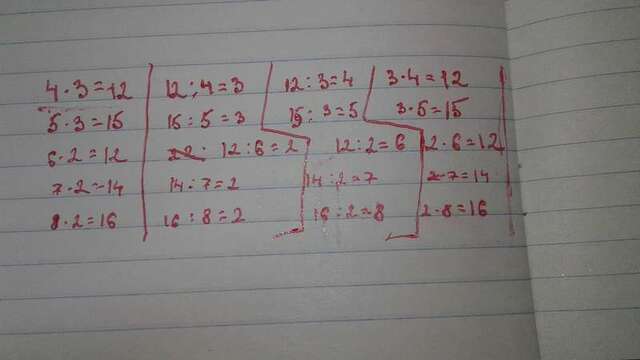 4·3=12 12:4=3 12:3=4 3·4=12
5·3=15 15:5=3 15:3=5 3·5=15
6·2=12 12:6=2 12:2=6 2·6=12
7·2=14 14:7=2 14:2=7 2·7=14
8·2=16 16:8=2 16:2=8 2·8=16